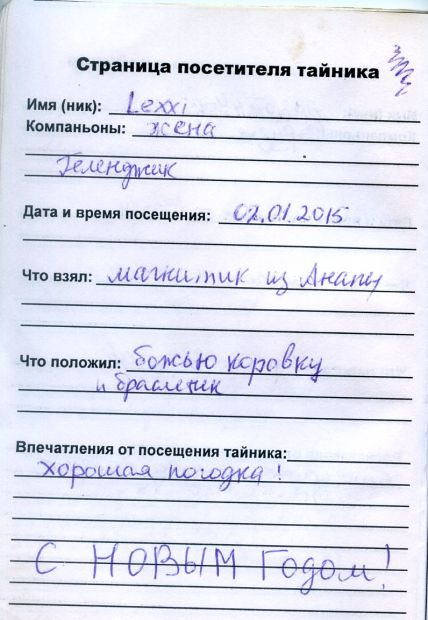 Страница посетителя тайника
Имя (ник): Lexxi
Компаньоны: жена
Геленджик
Дата и время посещения: 02.01.2015
Что взял: магнитик из Анапы
Что положил: божью коровку
и браслетик
Впечатления от посещения тайника:
хорошая погодка!
С НОВЫМ ГОДОМ!